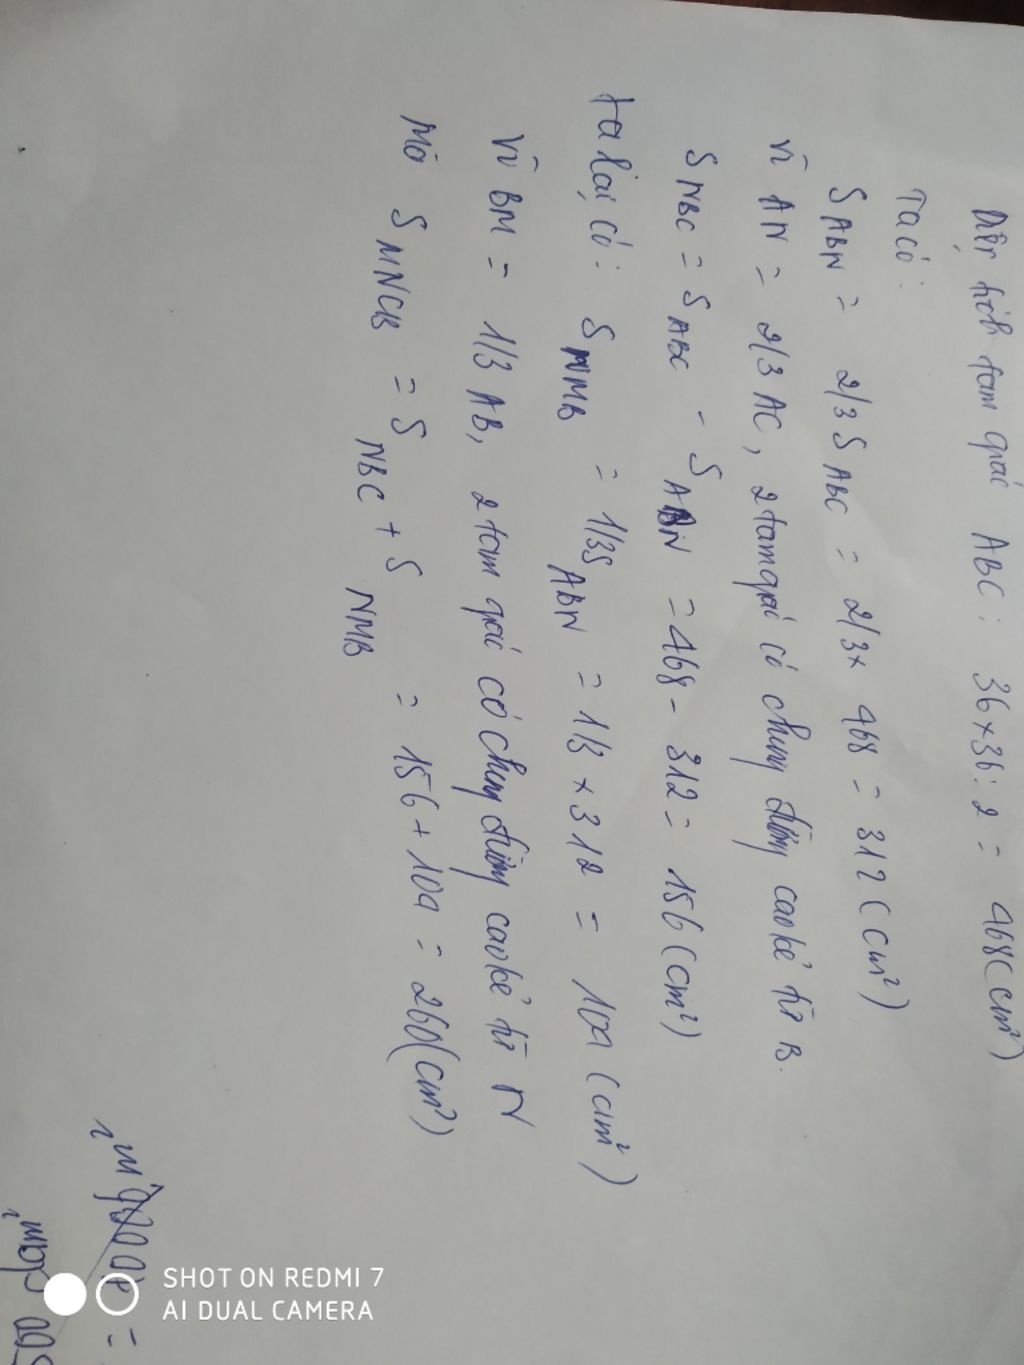 Diện tích tam giác ABC: 36 x 36 : 2 = 468 (cm²)
Ta có:
S ABN = 2/3 S ABC = 2/3 x 468 = 312 (cm²)
Vì AN = 2/3 AC, 2 tam giác có chung đường cao kẻ từ B.
S NBC = S ABC - S ABN = 468 - 312 = 156 (cm²)
Ta lại có: S NMB = 1/3 S ABN = 1/3 x 312 = 104 (cm²)
Vì BM = 1/3 AB, 2 tam giác có chung đường cao kẻ từ N
Mà S MNCB = S NBC + S NMB = 156 + 104 = 260 (cm²)
SHOT ON REDMI 7
AI DUAL CAMERA